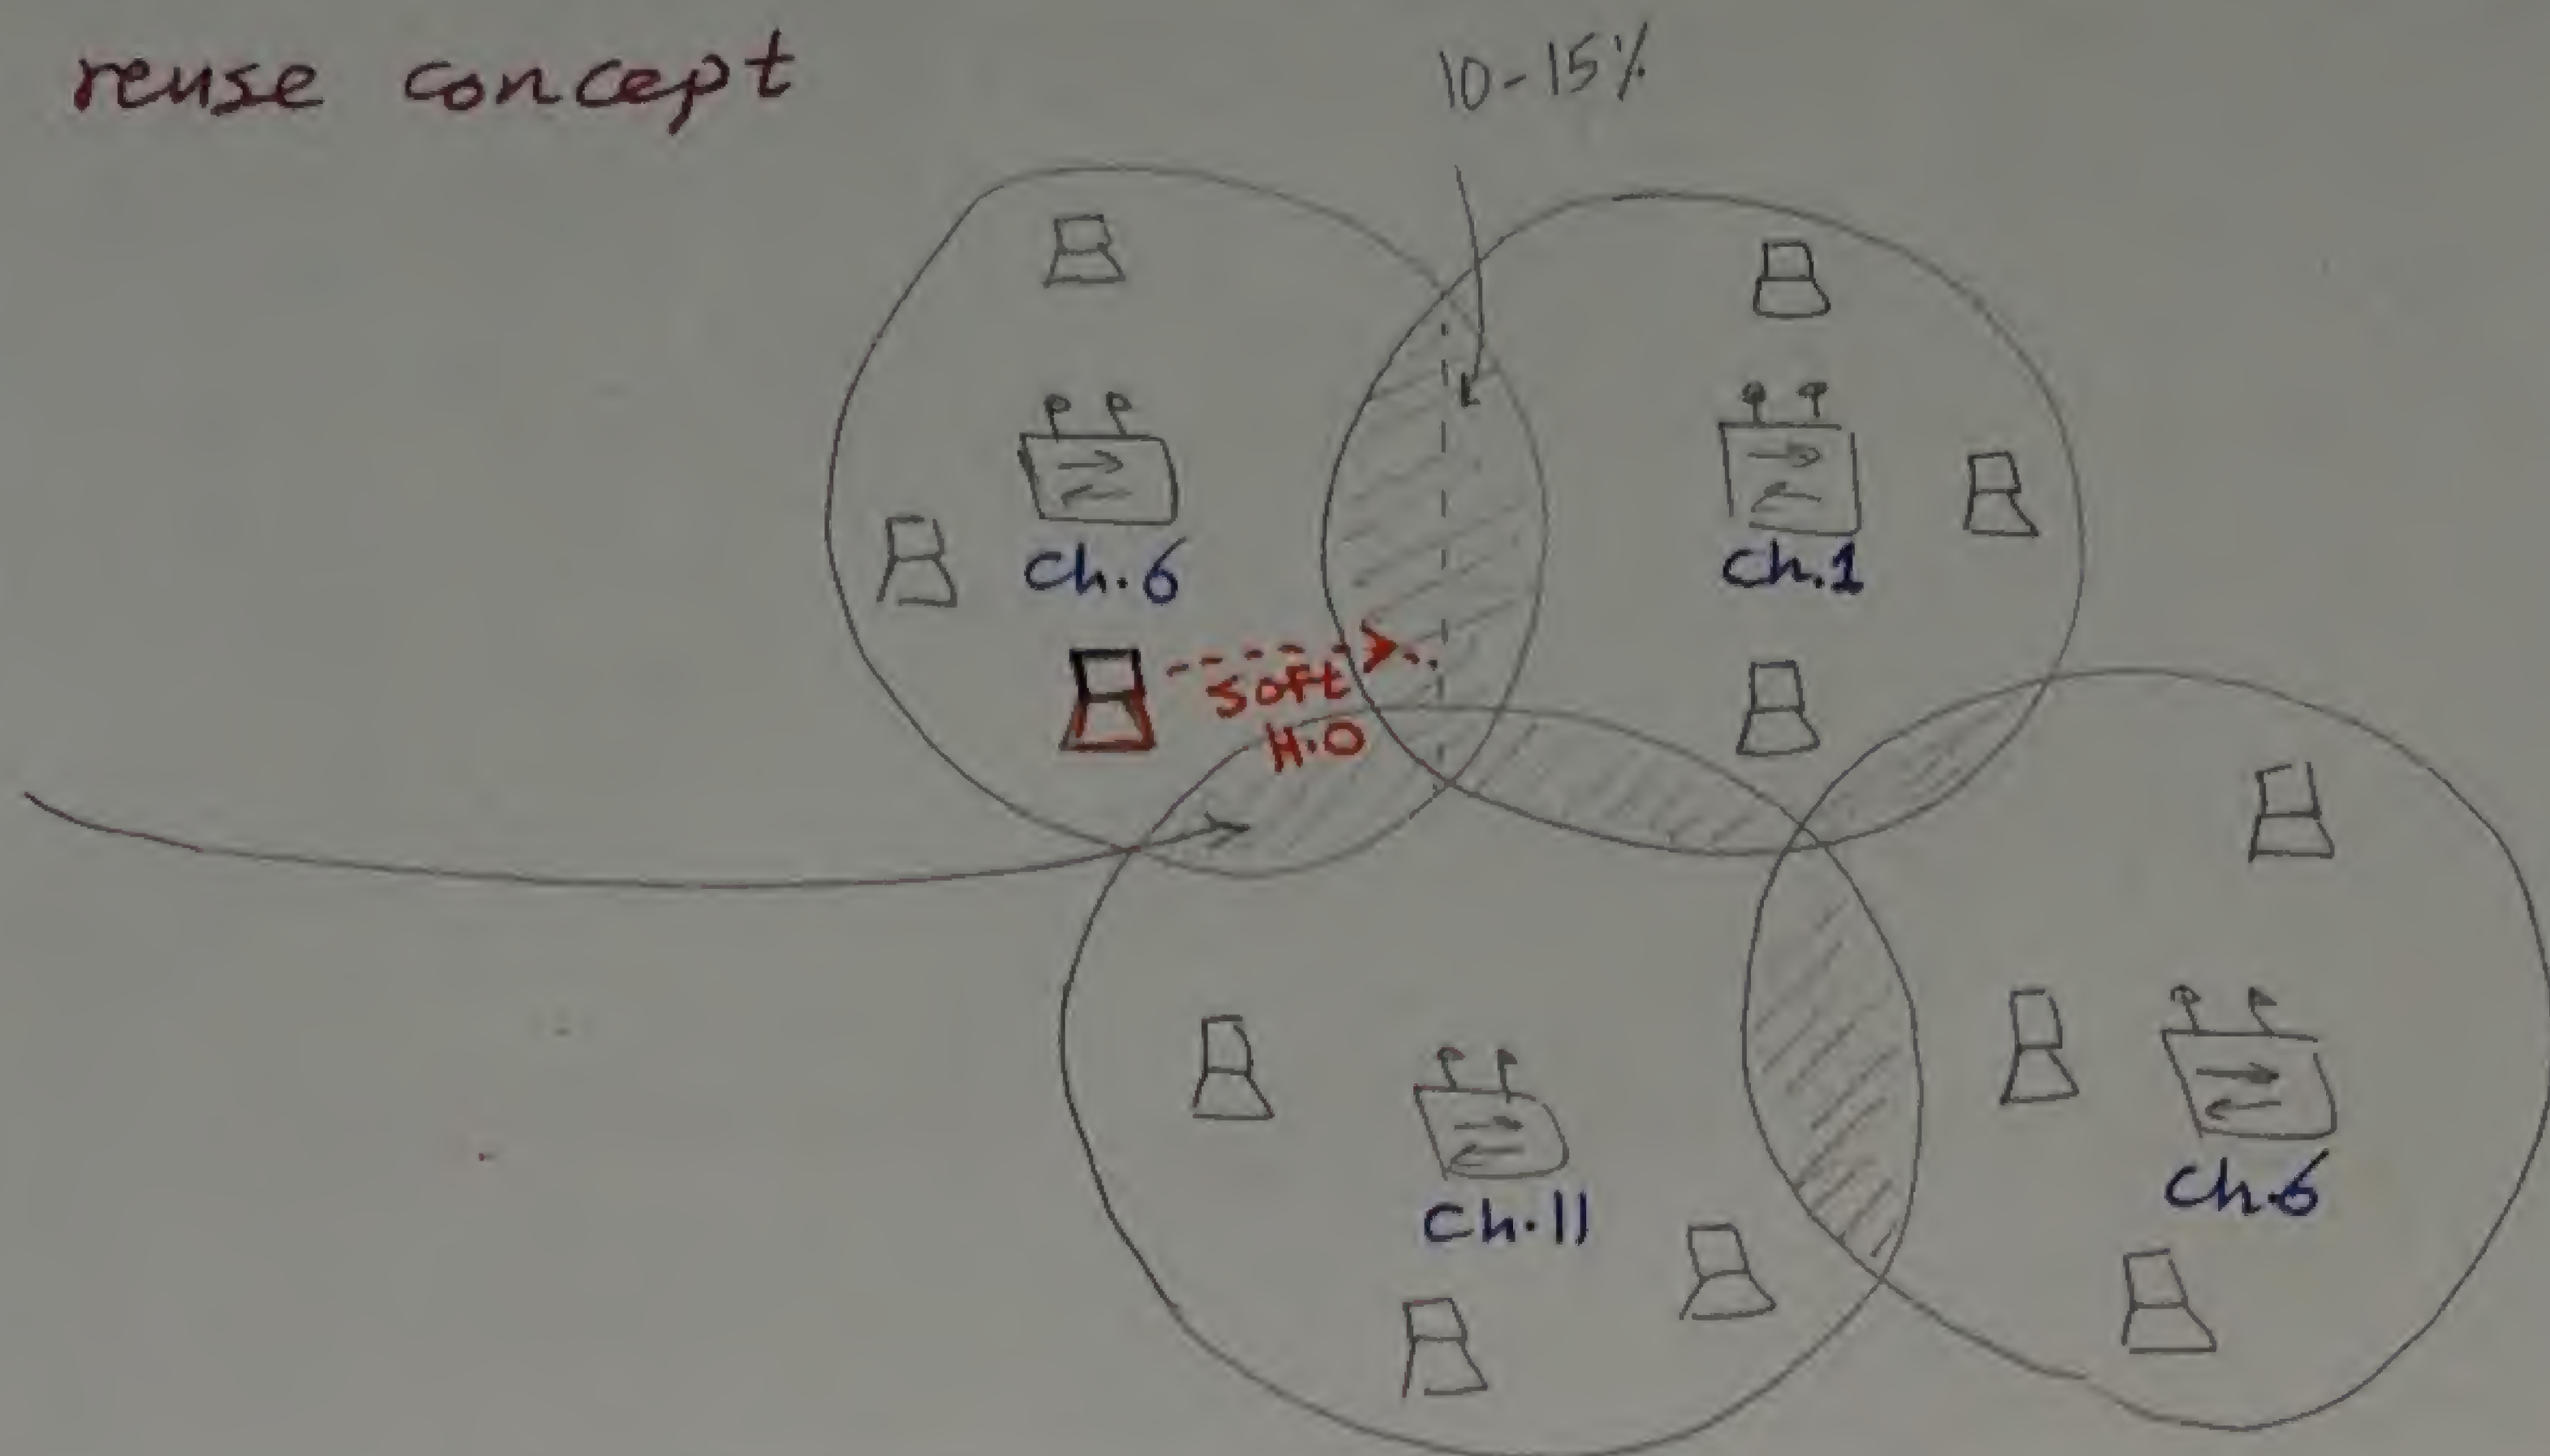 reuse concept
10-15%
ch.6
ch.1
soft
H.O
ch.11
ch.6